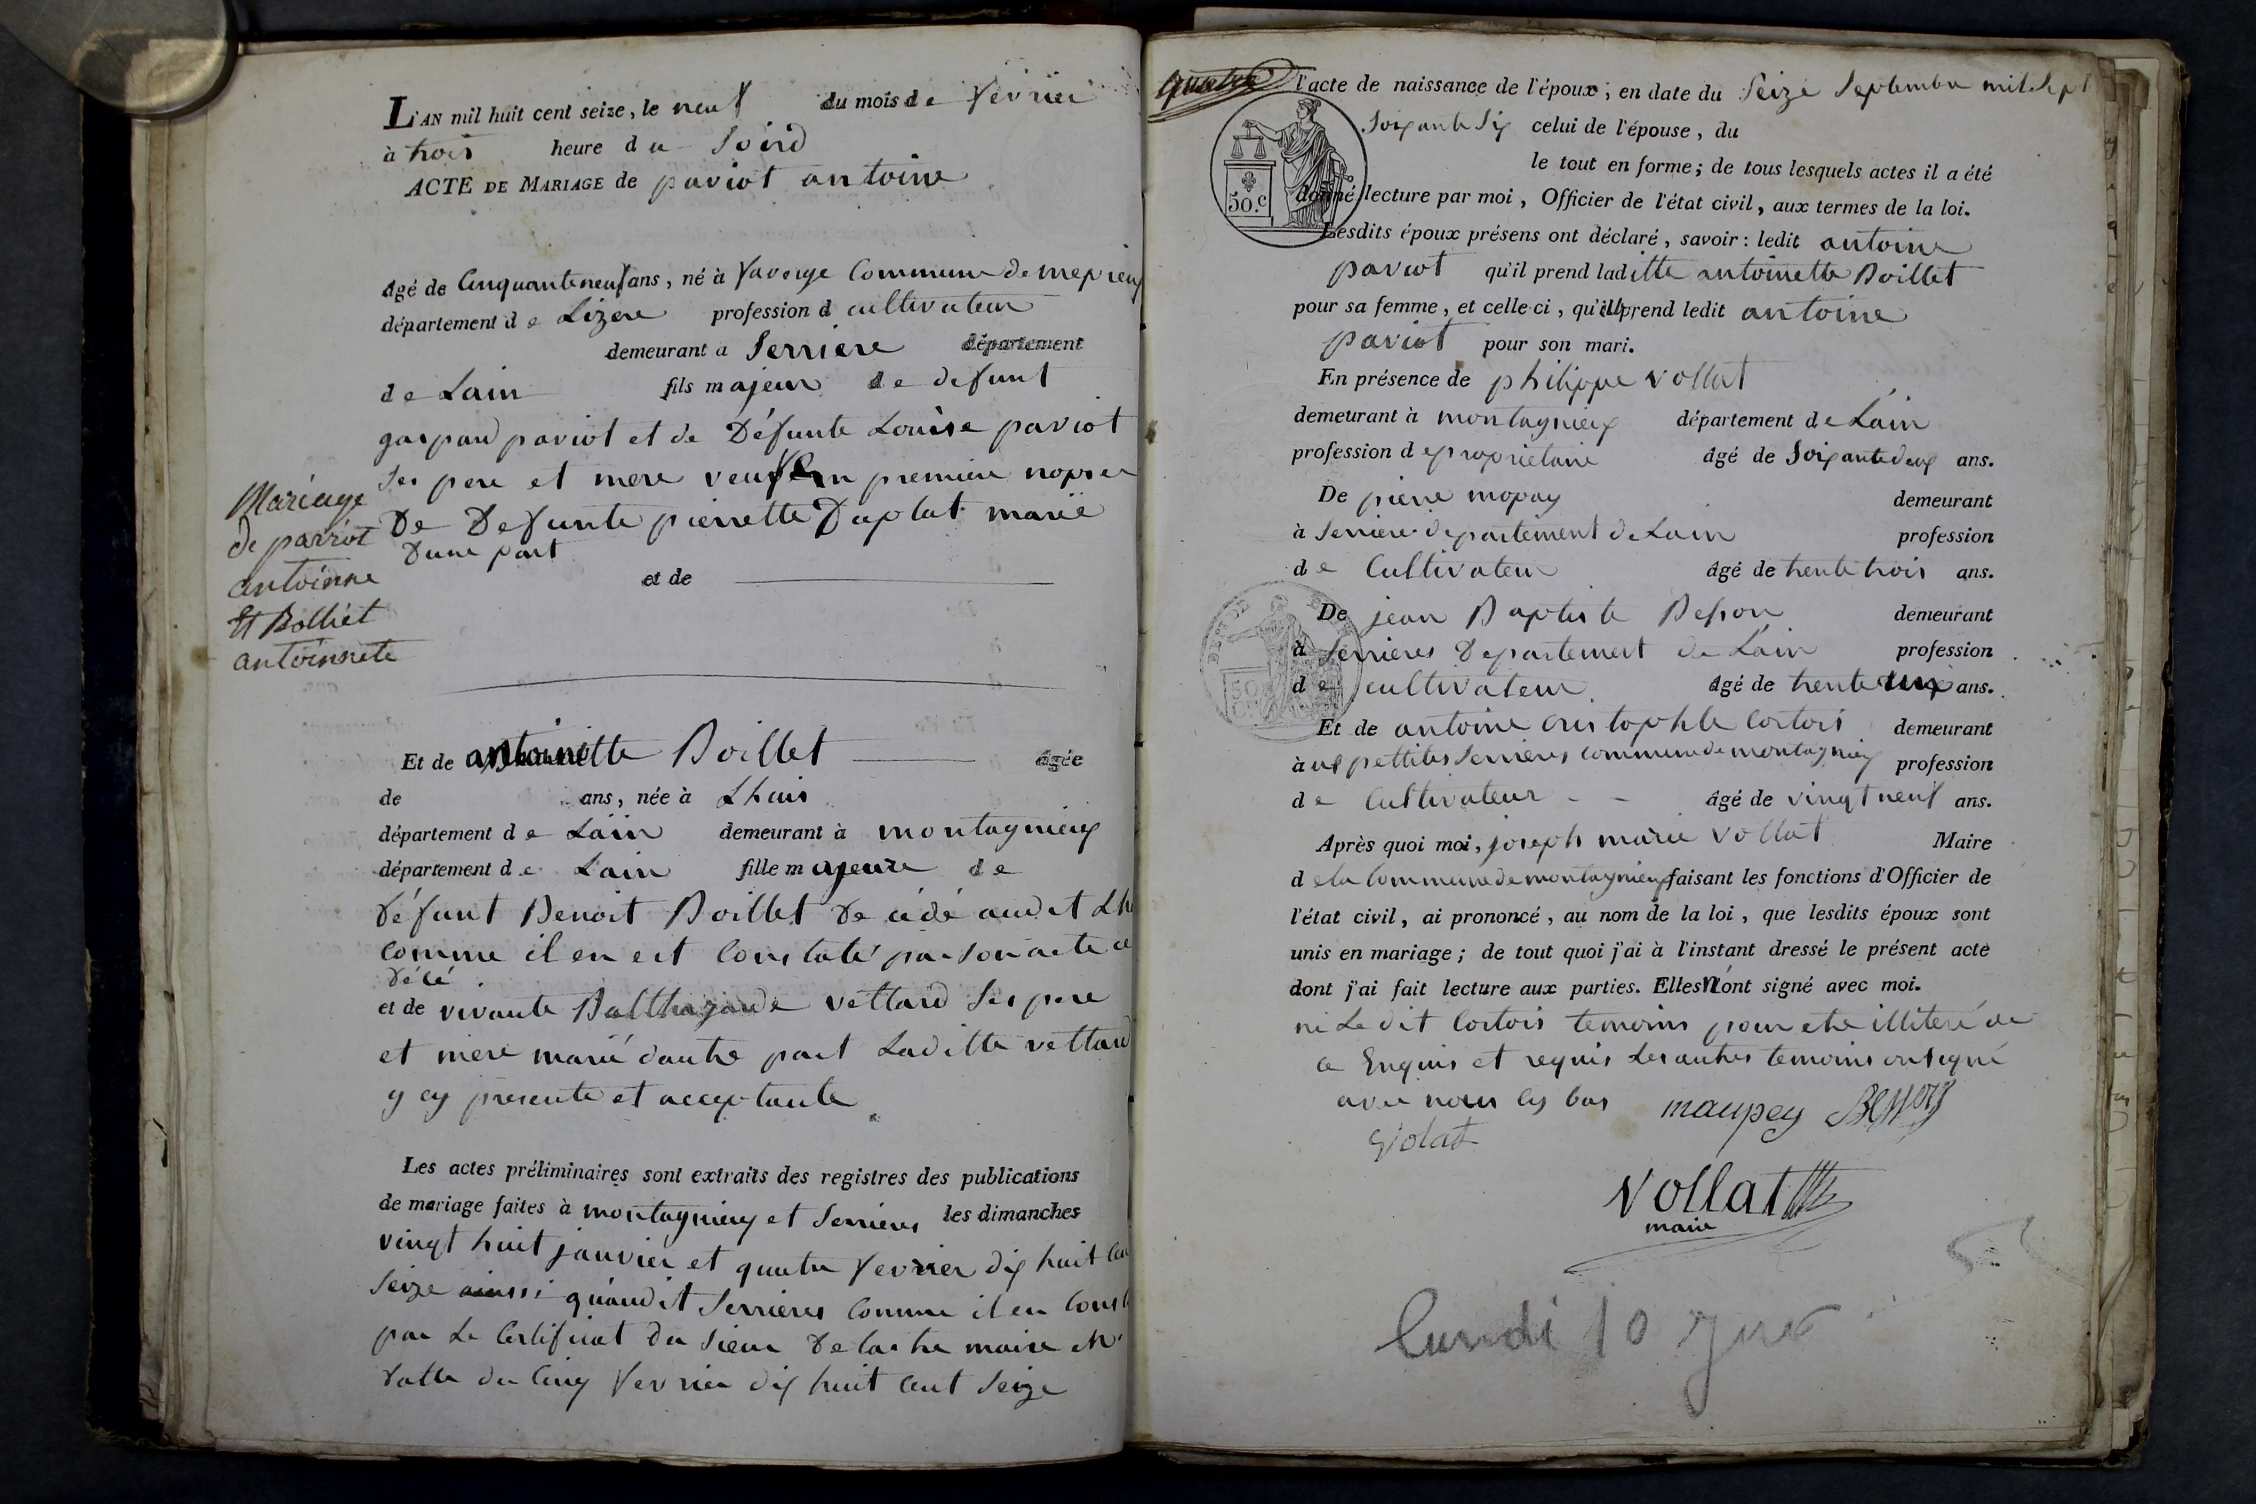 L'AN mil huit cent seize, le neuf du mois de fevrier
à trois heure du Soird
ACTE DE MARIAGE de paviot antoine
âgé de Cinquante neuf ans, né à faverge Commune de
département de Lizere profession d cultivateur
demeurant a Serriere département
de Lain fils majeur de defunt
gaspard paviot et de Défunte Louise paviot
ses pere et mere veuf en premiere
De Defunte pierrette Duplat marié
Dune part
et de
Mariage
de paviot
antoinne
Et Bolliet
antoinnete
Et de antoinette Boillet âgée
de ans, née à Lhuis
département de Lain demeurant à montagnieux
département de Lain fille majeure de
défunt Benoit Boillet décédé audit
comme il en est Constaté par son acte
décé
et de vivante Balthazarde vettard ses pere
et mere marié dautre part Laditte vettard
y cy presente et acceptante
Les actes préliminaires sont extraits des registres des publications
de mariage faites à montagnieux et Serrieres les dimanches
vingt huit janvier et quatre fevrier dix huit
Seize ainssi quaudit Serrieres Comme il en
par Le Certificat du Sieur maire
datte du Cinq fevrier dix huit Cent Seize
quatre
l'acte de naissance de l'époux; en date du Seize Septembre mil Sept
Soixante Six celui de l'épouse, du
le tout en forme; de tous lesquels actes il a été
50.c
donné lecture par moi, Officier de l'état civil, aux termes de la loi.
Lesdits époux présens ont déclaré, savoir: ledit antoine
paviot qu'il prend laditte antoinette Boillet
pour sa femme, et celle-ci, qu'elle prend ledit antoine
paviot pour son mari.
En présence de philippe vollat
demeurant à montagnieux département de Lain
profession de proprietaire âgé de Soixante deux ans.
De pierre mopay demeurant
à Serriere departement de Lain profession
de Cultivateur âgé de trente trois ans.
De jean Baptiste Besson demeurant
à Serrieres Departement de Lain profession
de cultivateur âgé de trente ans.
Et de antoine cristophle Cortois demeurant
à aux pettites Serrieres commune de montagnieux profession
de Cultivateur âgé de vingt neuf ans.
Après quoi moi, joseph marie vollat Maire
de la Commune de montagnieux faisant les fonctions d'Officier de
l'état civil, ai prononcé, au nom de la loi, que lesdits époux sont
unis en mariage; de tout quoi j'ai à l'instant dressé le présent acte
dont j'ai fait lecture aux parties. Elles n'ont signé avec moi.
ni Le dit Cortois temoins pour etre illiteré de
ce Enquis et requis Les autres temoins ont signé
avec nous cy bas maupey Besson
Vollat
maire
lundi 10